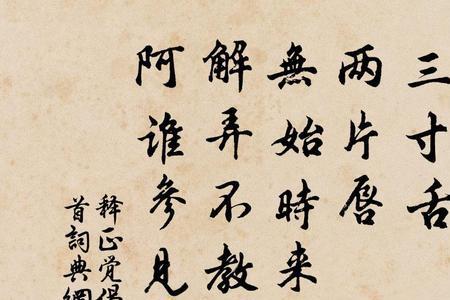 三寸舌
两片唇
無始時来
解弄不教
阿谁參見
释正觉偈
首詞典網